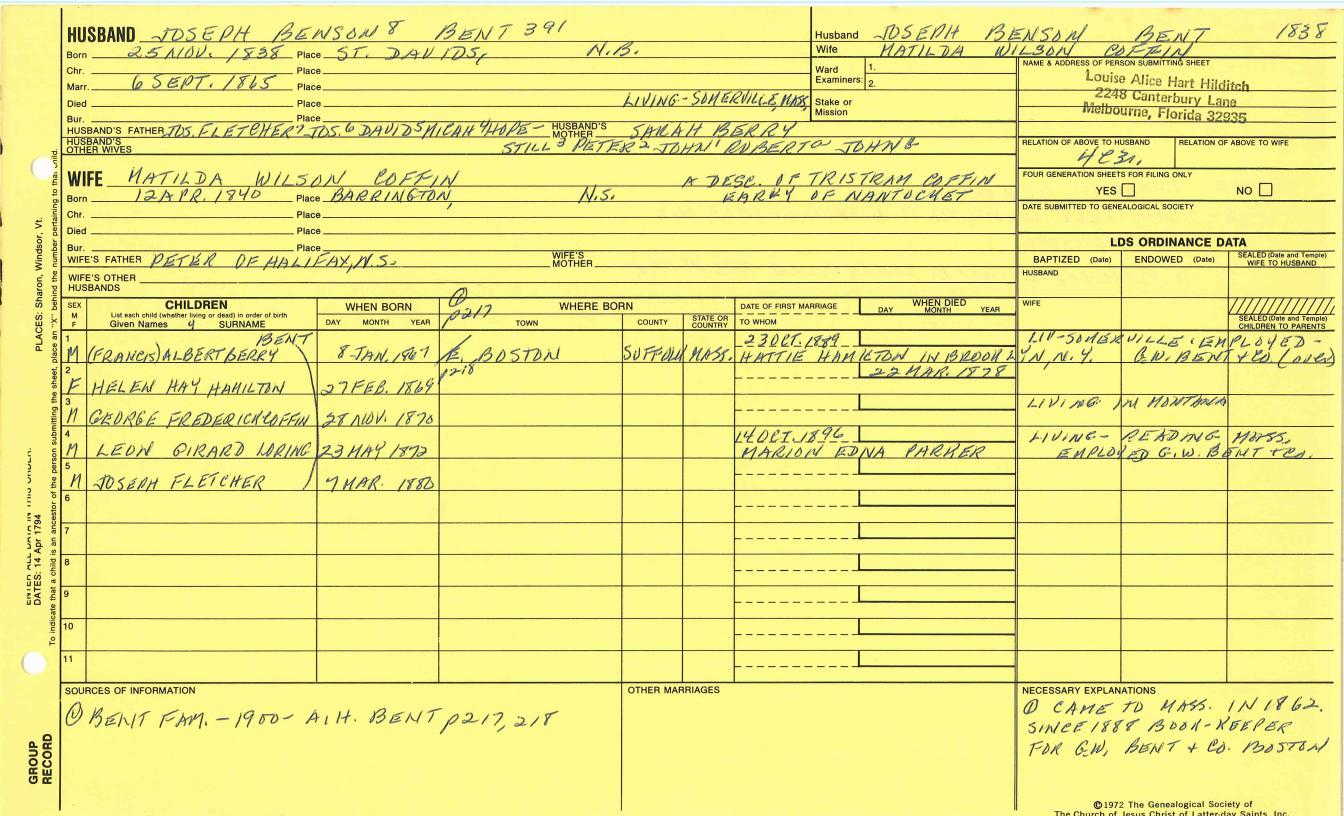 HUSBAND JOSEPH BENSON 8 BENT 391
Born 25 NOV. 1838 Place ST. DAVIDS, N.B.
Chr. Place
Marr. 6 SEPT. 1865 Place
Died Place LIVING - SOMERVILLE, MASS.
Bur. Place
HUSBAND'S FATHER JOS. FLETCHER 7 JOS. 6 DAVID 5 MICAH 4 HOPE- HUSBAND'S MOTHER SARAH BERRY
HUSBAND'S OTHER WIVES STILL 3 PETER 2 JOHN 1 ROBERT a JOHN B
Husband JOSEPH BENSON BENT 1838
Wife MATILDA WILSON COFFIN
Ward Examiners: 1.
2.
Stake or Mission
NAME & ADDRESS OF PERSON SUBMITTING SHEET
Louise Alice Hart Hilditch
2248 Canterbury Lane
Melbourne, Florida 32935
RELATION OF ABOVE TO HUSBAND RELATION OF ABOVE TO WIFE
FOUR GENERATION SHEETS FOR FILING ONLY
YES NO
DATE SUBMITTED TO GENEALOGICAL SOCIETY
WIFE MATILDA WILSON COFFIN A DESC. OF TRISTRAM COFFIN
Born 12 APR. 1840 Place BARRINGTON, N.S. EARLY OF NANTUCKET
Chr. Place
Died Place
Bur. Place
WIFE'S FATHER PETER OF HALIFAX, N.S. WIFE'S MOTHER
WIFE'S OTHER HUSBANDS
LDS ORDINANCE DATA
BAPTIZED (Date) ENDOWED (Date) SEALED (Date and Temple) WIFE TO HUSBAND
HUSBAND
WIFE
SEALED (Date and Temple) CHILDREN TO PARENTS
SEX M F
CHILDREN
List each child (whether living or dead) in order of birth
Given Names SURNAME
WHEN BORN
DAY MONTH YEAR
① p217
WHERE BORN
TOWN COUNTY STATE OR COUNTRY
DATE OF FIRST MARRIAGE
TO WHOM
WHEN DIED
DAY MONTH YEAR
1 BENT 23 OCT. 1889 LIV-SOMERVILLE, EMPLOYED -
M (FRANCIS) ALBERT BERRY 8 JAN. 1867 E. BOSTON SUFFOLK MASS. HATTIE HAMILTON IN BROOKLYN, N.Y. G.W. BENT & CO. (OVER)
2 p218 22 MAR. 1878
F HELEN HAY HAMILTON 27 FEB. 1869
3 LIVING IN MONTANA
M GEORGE FREDERICK COFFIN 28 NOV. 1870
4 14 OCT. 1896 LIVING - READING MASS.
M LEON GIRARD LORING 23 MAY 1872 MARION EDNA PARKER EMPLOYED G.W. BENT & CO.
5
M JOSEPH FLETCHER 7 MAR. 1880
6
7
8
9
10
11
SOURCES OF INFORMATION
① BENT FAM. - 1900 - A.H. BENT p217, 218
OTHER MARRIAGES
NECESSARY EXPLANATIONS
① CAME TO MASS. IN 1862.
SINCE 1888 BOOK-KEEPER
FOR G.W. BENT & CO. BOSTON
©1972 The Genealogical Society of
The Church of Jesus Christ of Latter-day Saints, Inc.
PLACES: Sharon, Windsor, Vt.
To indicate that a child is an ancestor of the person submitting the sheet, place an "X" behind the number pertaining to that child.
ENTER ALL DATA IN THIS ORDER:
DATES: 14 Apr 1794
GROUP RECORD